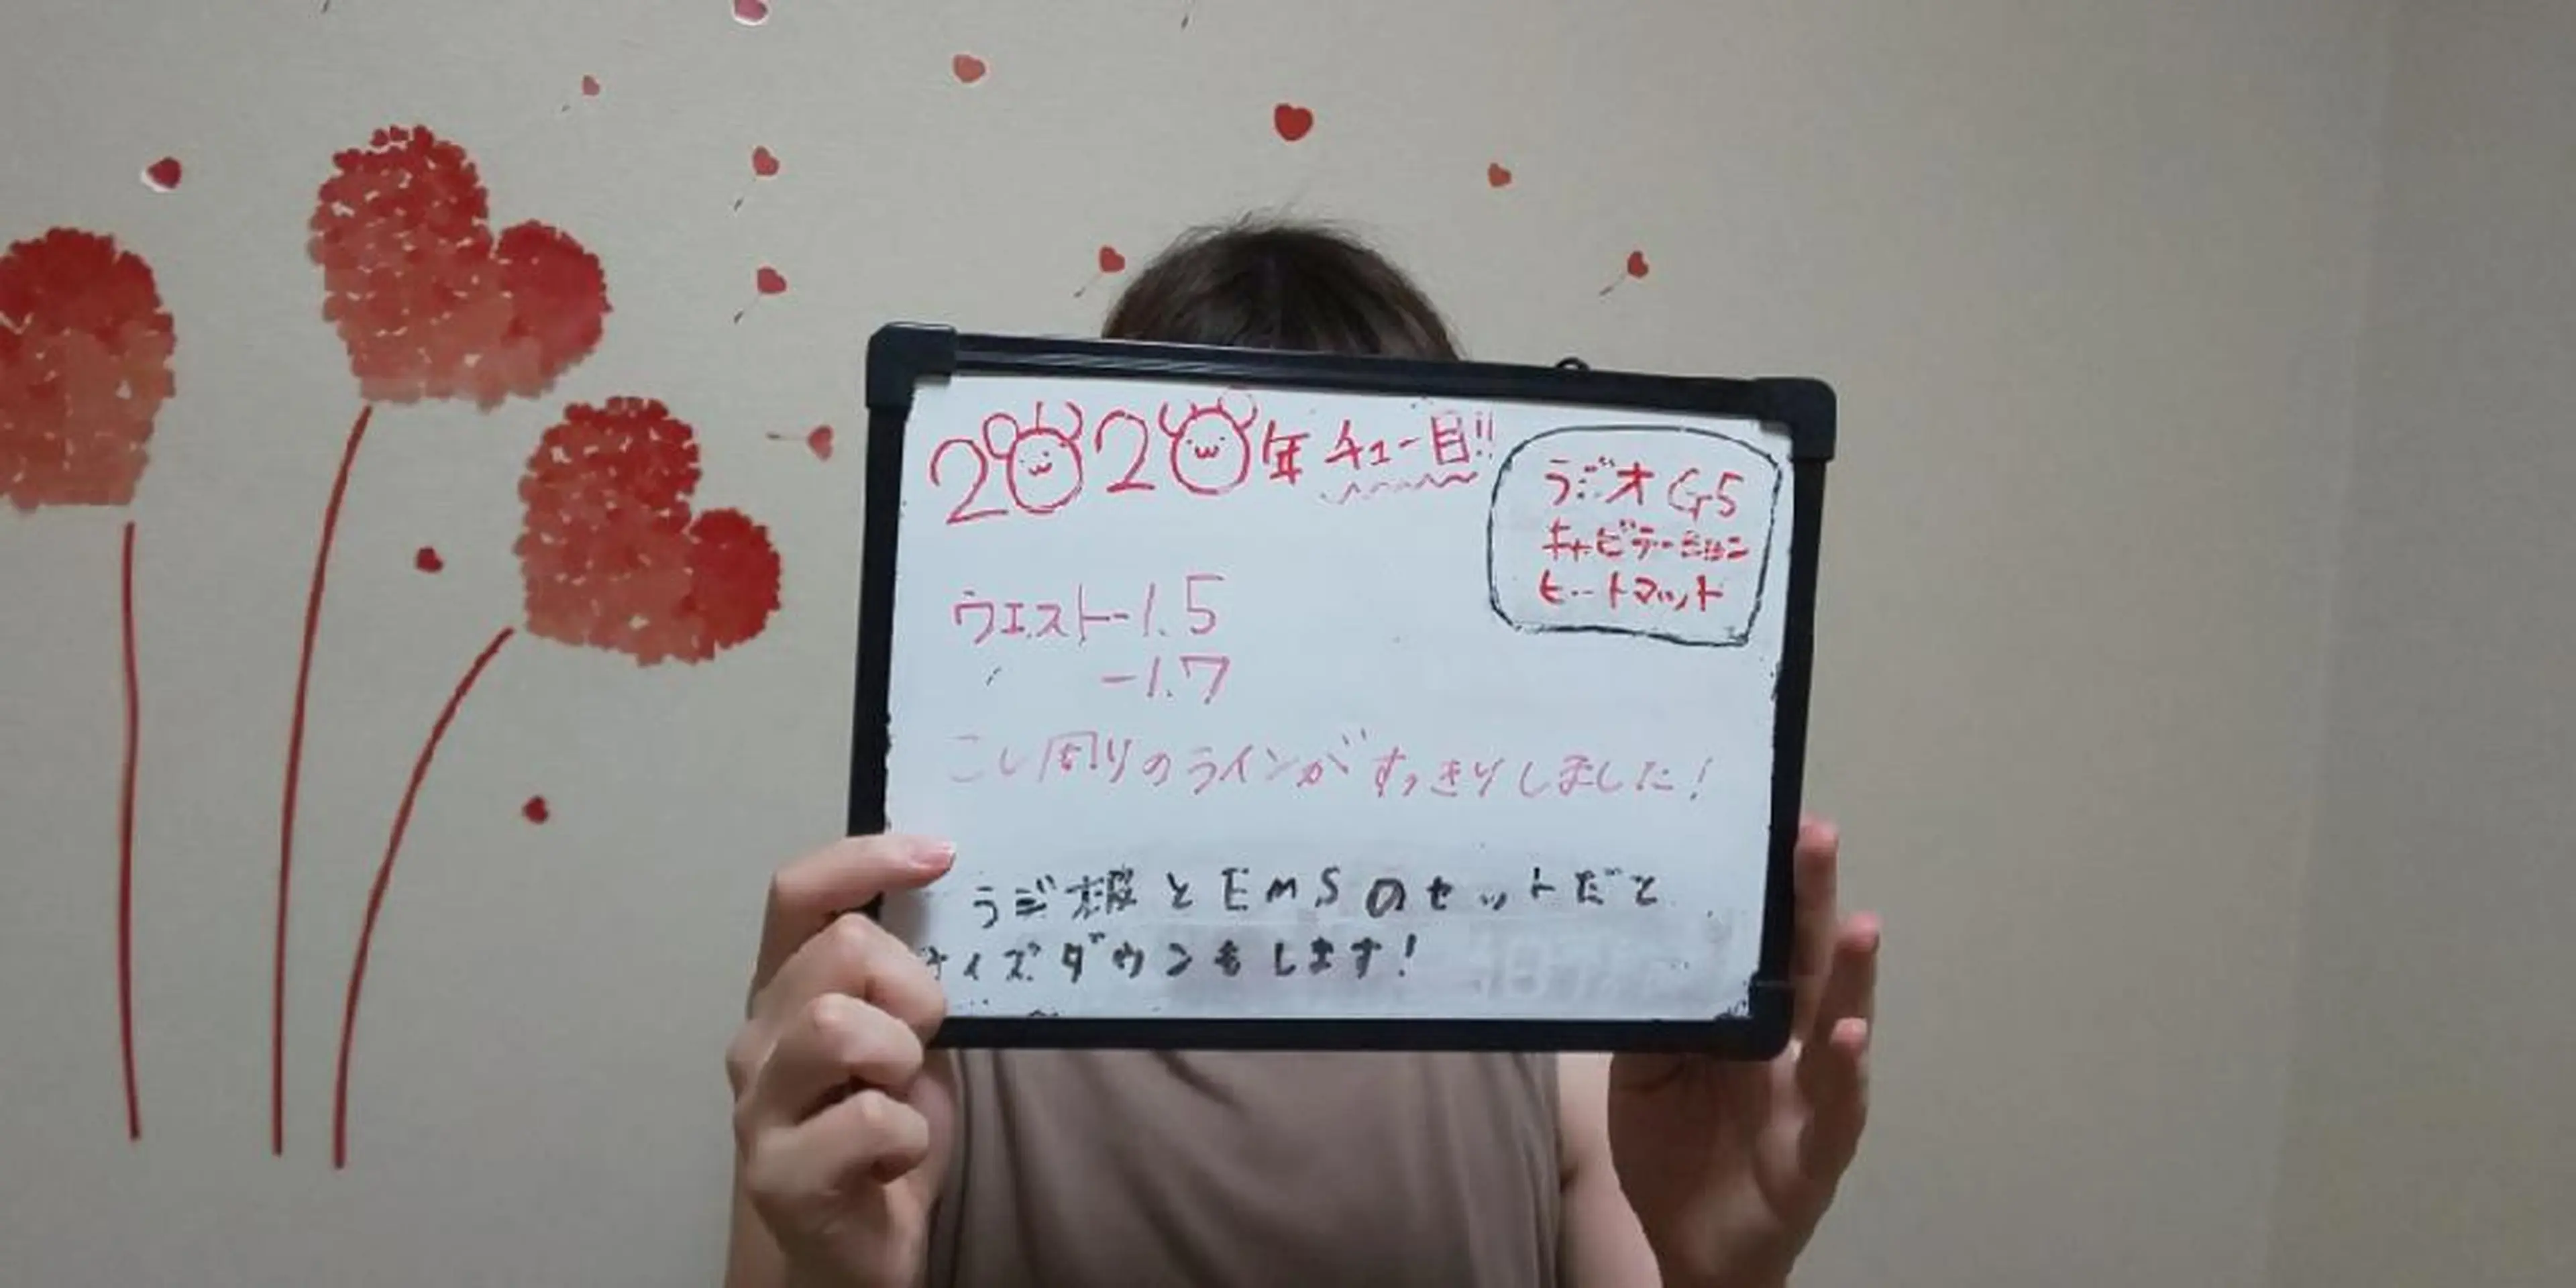 2020年チュー目!!
ラジオ G5
キャビテーション
ヒートマット
ウエスト-1.5
-1.7
こし周りのラインがすっきりしました!
ラジ波とEMSのセットだと
サイズダウンもします!